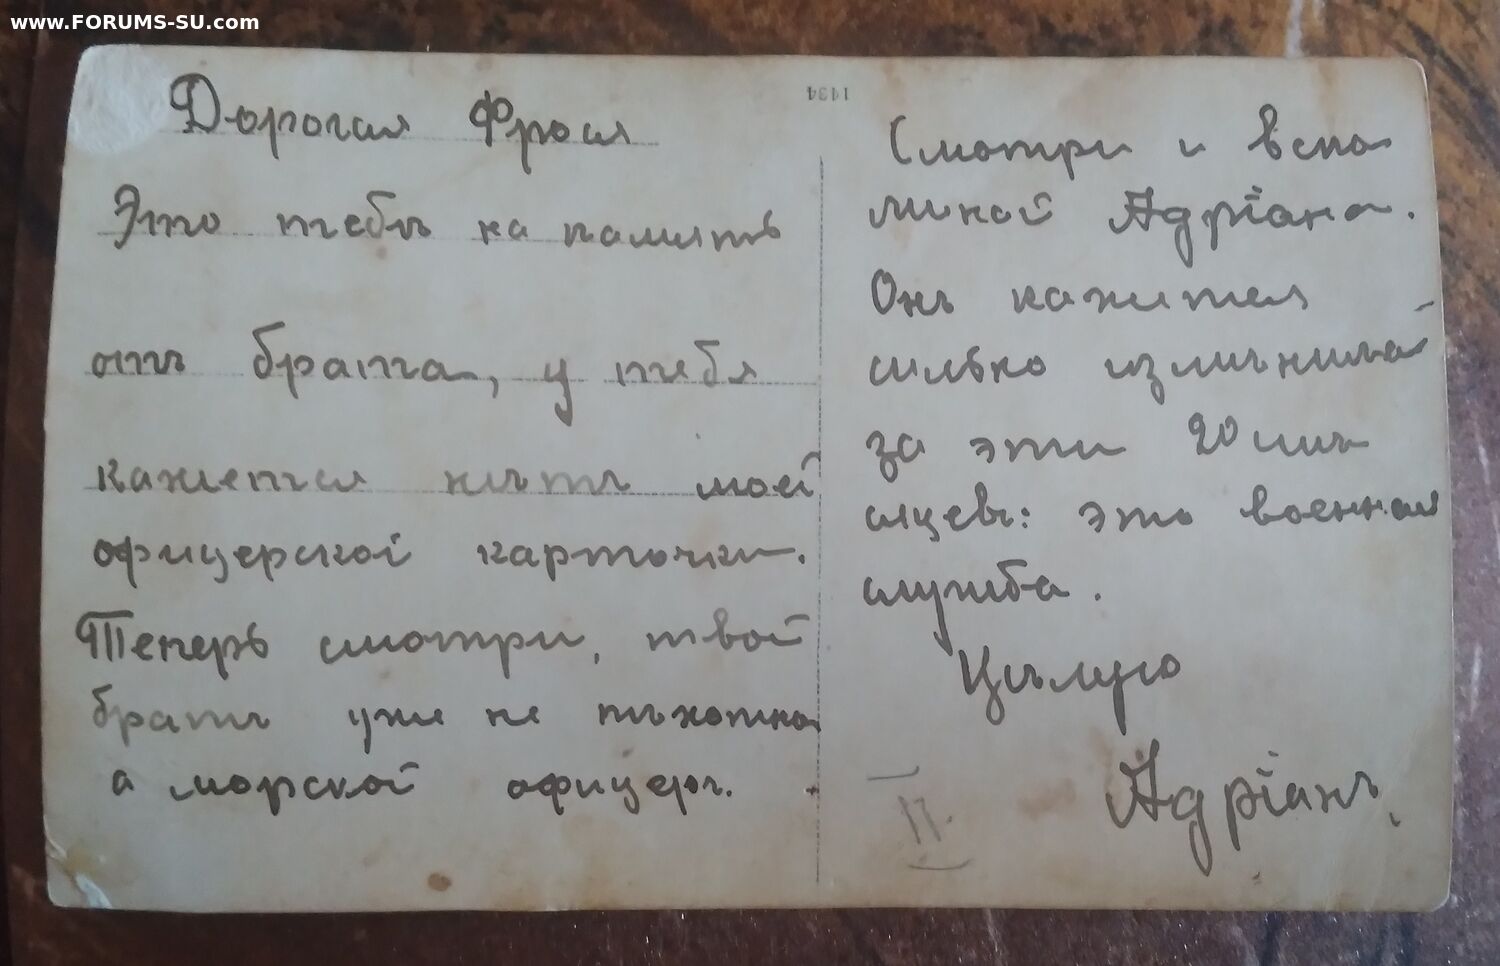 www.FORUMS-SU.com
1434
Дорогая Фрося
Это тебѣ на память
отъ брата, у тебя
кажется нѣтъ моей
офицерской карточки.
Теперь смотри, твой
братъ уже не пѣхотно
а морской офицеръ.
Смотри и вспо
минай Адріана.
Онъ кажится
сильно измѣнился
за эти 20 мѣ
сяцевъ: это военная
служба.
Цѣлую
Адріанъ